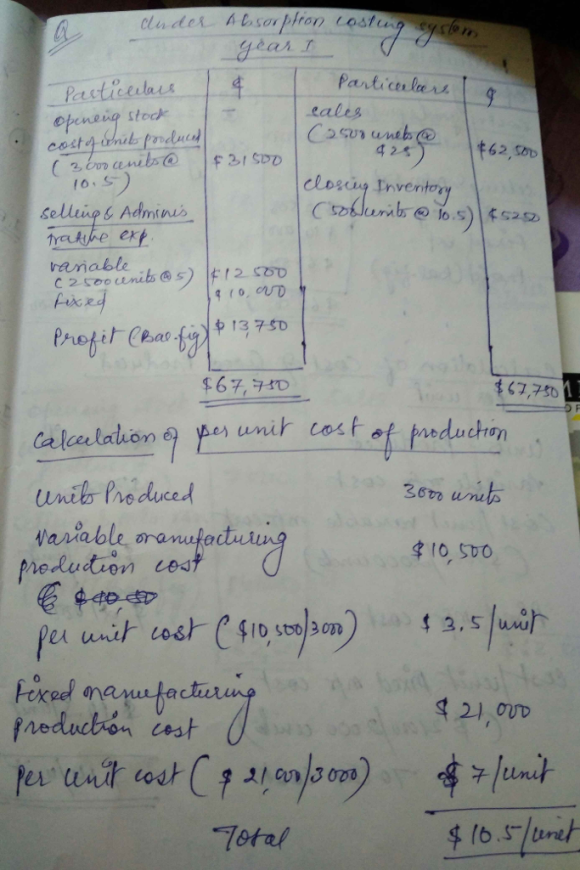 Q
Under Absorption costing system
Year I
Particulars $ Particulars $
opening stock — sales
cost of units produced (2500 units @
(3000 units @ $31500 $25) $62,500
10.5) closing Inventory
selling & Adminis (500 units @ 10.5) $5250
trative exp.
variable $12500
(2500 units @ 5)
fixed $10,000
Profit (Bal.fig) $13,750
$67,750 $67,750
Calculation of per unit cost of production
Units Produced 3000 units
Variable manufacturing
production cost $10,500
per unit cost ($10,500/3000) $3.5/unit
Fixed manufacturing
production cost $21,000
per unit cost ($21,000/3000) $7/unit
Total $10.5/unit